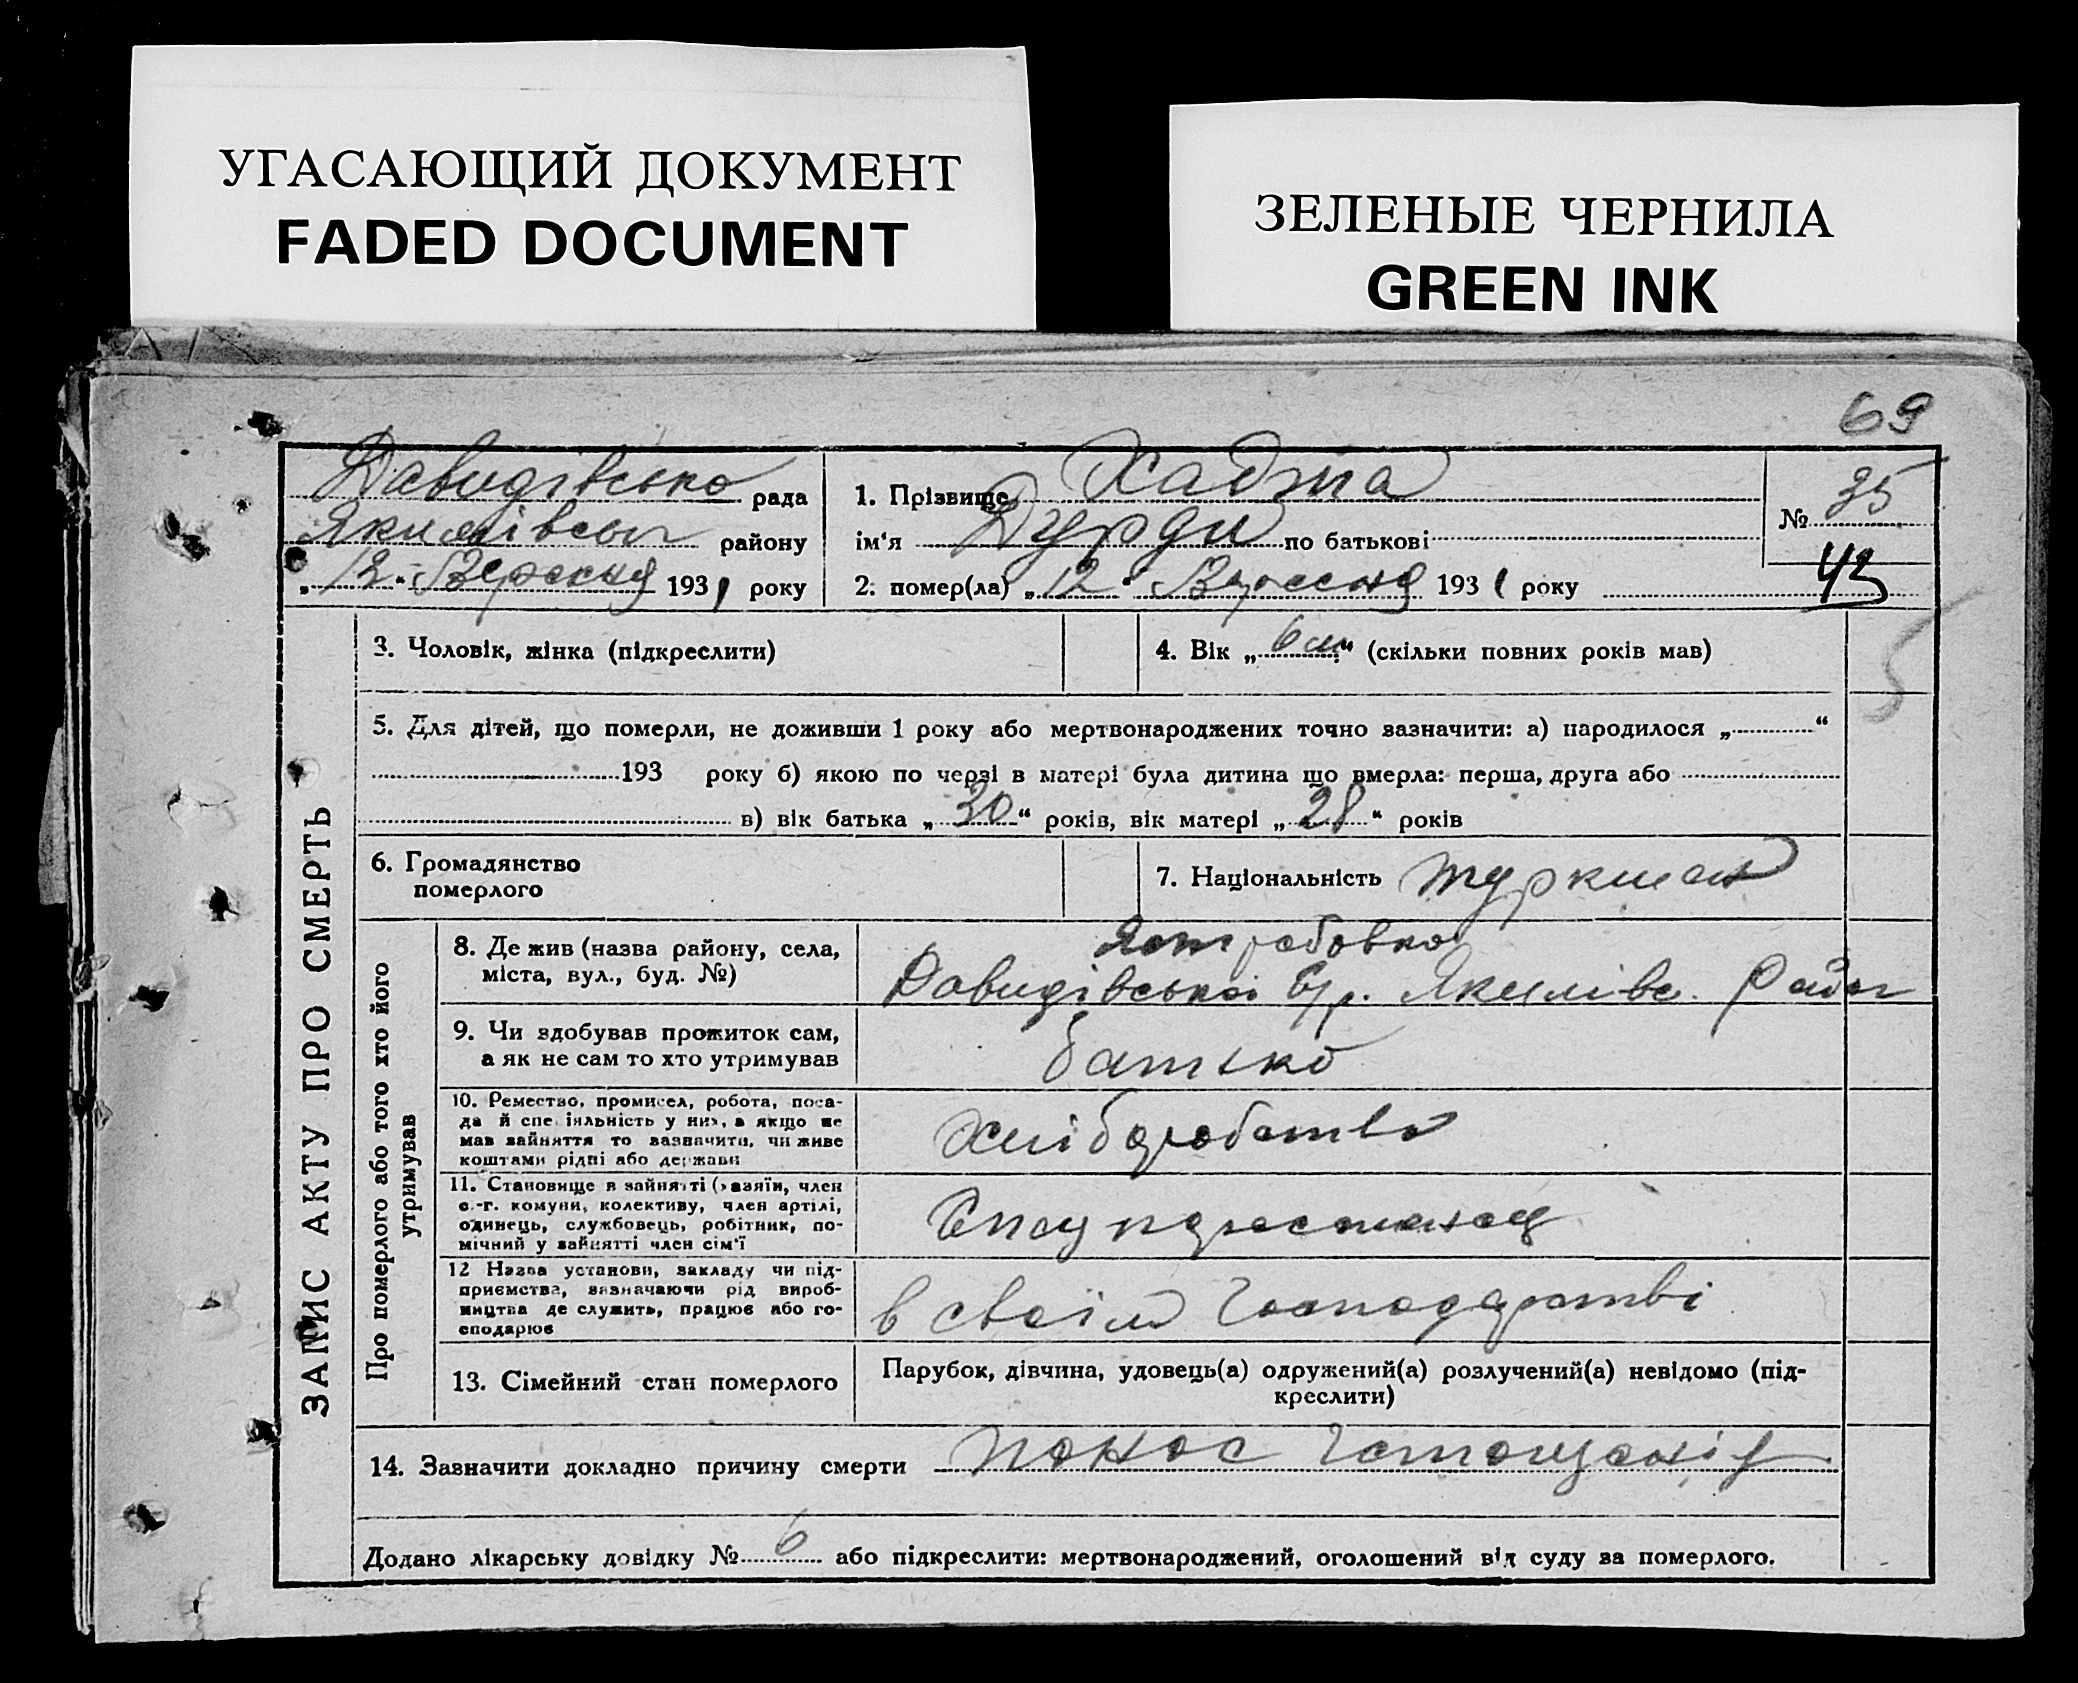 УГАСАЮЩИЙ ДОКУМЕНТ
FADED DOCUMENT
ЗЕЛЕНЫЕ ЧЕРНИЛА
GREEN INK
69
Давидівсько рада
району
„12“ Вересня 1931 року
1. Прізвище Хаджа
ім‘я Дурди по батькові
2. помер(ла) „12“ Вересня 1931 року
№ 35
43
ЗАПИС АКТУ ПРО СМЕРТЬ
3. Чоловік, жінка (підкреслити)
4. Вік „6 м“ (скільки повних років мав)
5
5. Для дітей, що померли, не доживши 1 року або мертвонароджених точно зазначити: а) народилося „ “
193 року б) якою по черзі в матері була дитина що вмерла: перша, друга або
в) вік батька „30“ років, вік матері „28“ років
6. Громадянство
померлого
7. Національність туркмен
Про померлого або того хто його
утримував
8. Де жив (назва району, села,
міста, вул., буд. №)
Давидівської с/р. Якимівс. Район
9. Чи здобував прожиток сам,
а як не сам то хто утримував
батько
10. Ремество, промисел, робота, поса-
да й спеціяльність у них, а якщо не
мав зайняття то зазначити, чи живе
коштами рідні або держави
Хліборобство
11. Становище в зайнятті (хазяїн, член
с.-г. комуни, колективу, член артілі,
одинець, службовець, робітник, по-
мічний у зайнятті член сім‘ї
12 Назва установи, закладу чи під-
приємства, зазначаючи рід вироб-
ництва де служить, працює або го-
сподарює
в своїм господарстві
13. Сімейний стан померлого
Парубок, дівчина, удовець(а) одружений(а) розлучений(а) невідомо (під-
креслити)
14. Зазначити докладно причину смерти понос істощеній
Додано лікарську довідку № 6 або підкреслити: мертвонароджений, оголошений від суду за померлого.